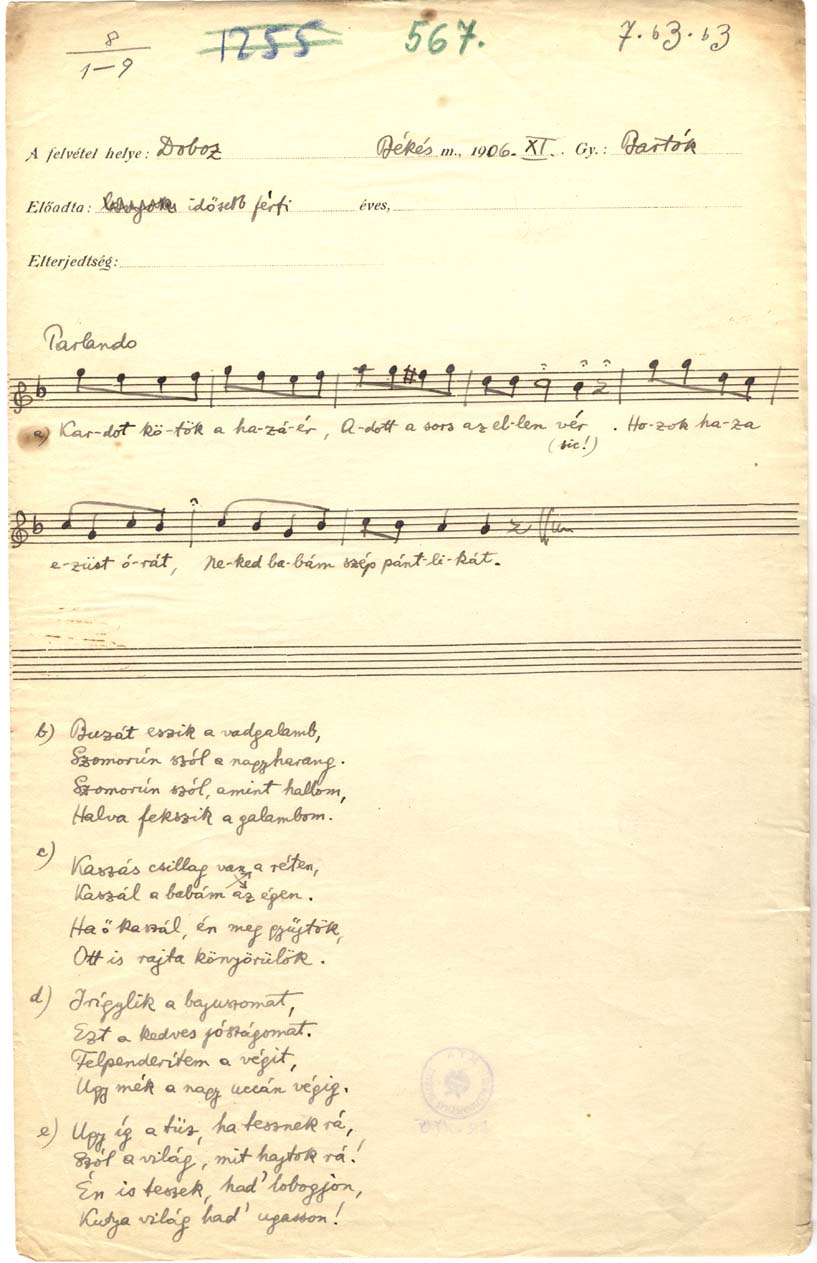 8
1–9
1255
567.
7. b3. b3
A felvétel helye: Doboz Békés m., 1906. XI. Gy.: Bartók
Előadta: idősebb férfi éves,
Elterjedtség:
Parlando
a) Kar-dot kö-tök a ha-zá-ér, A-dott a sors az el-len vér. Ho-zok ha-za
(sic!)
e-züst ó-rát, Ne-ked ba-bám szép pánt-li-kát.
b) Buzát eszik a vadgalamb,
Szomorún szól a nagyharang.
Szomorún szól, amint hallom,
Halva fekszik a galambom.
c) Kaszás csillag van a réten,
Kaszál a babám az égen.
Ha ő kaszál, én meg gyűjtök,
Ott is rajta könyörülök.
d) Irígylik a bajuszomat,
Ezt a kedves jószágomat.
Felpenderítem a végit,
Ugy mék a nagy uccán végig.
e) Ugy íg a tüz, ha tesznek rá,
Szól a világ, mit hajtok rá!
Én is teszek, had' lobogjon,
Kutya világ had' ugasson!